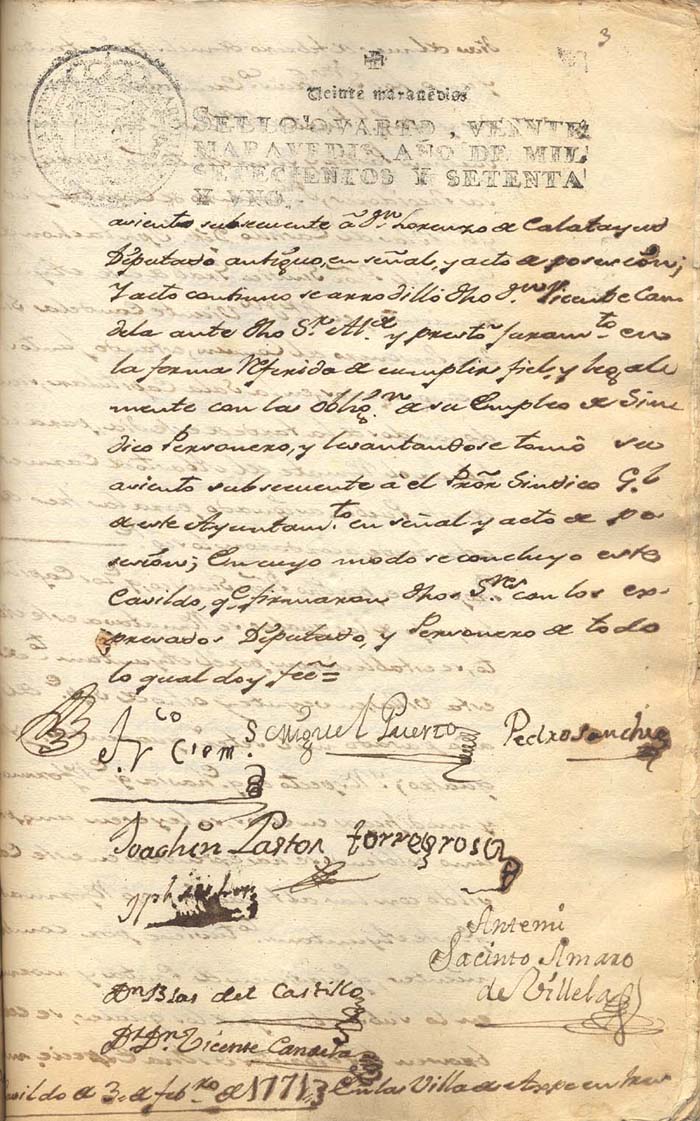 3
Veinte maravedis
SELLO QVARTO, VEINTE
MARAVEDIS, AÑO DE MIL
SETECIENTOS Y SETENTA
Y VNO.
asiento subsecuente â Dn. Lorenzo de Calatayud
Diputado antiguo, en señal, y acto de posesion;
Y acto continuo se arrodilló dho Dn. Vicente Can
dela ante dho Sr. Alle. y prestò juramto. en
la forma referida de cumplir fiel, y legal
mente con las obligon. de su Empleo de Sin
dico Personero, y levantandose tomò su
asiento subsecuente â el Pror. Sindico Gl.
de este Ayuntamto. en señal y acto de po
sesion; En cuyo modo se concluyo este
Cavildo, qe. firmaron dhos Sres. con los ex
presados Diputado, y Personero de todo
lo qual doy feê =
Frco Ciem S Miguel Puerto Pedro Sanchiz
Joachin Pastor torregrosa
Antemi
Jacinto Amaro
de Villela
Dn Blas del Castillo
Dr. Dn. Vicente Candela
Cavildo de 3 de febro. de 1771 En la Villa de Aspe en tres